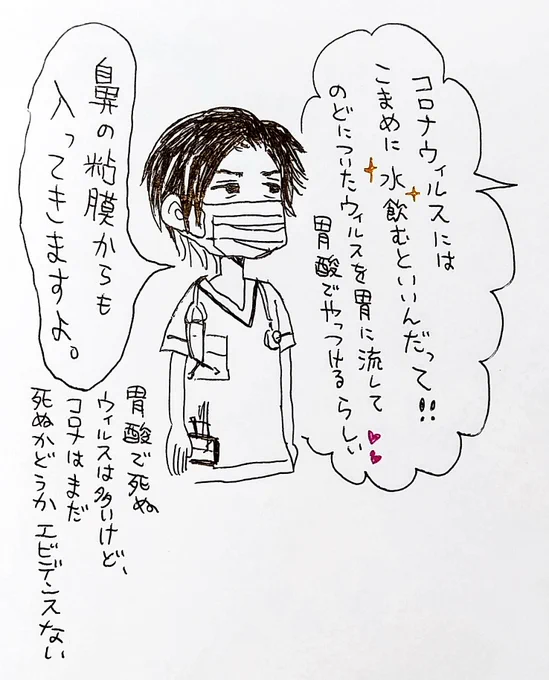 コロナウィルスには
こまめに水飲むといいんだって!!
のどについたウィルスを胃に流して
胃酸でやっつけるらしい
鼻の粘膜からも
入ってきますよ。
胃酸で死ぬ
ウィルスは多いけど、
コロナはまだ
死ぬかどうかエビデンスない